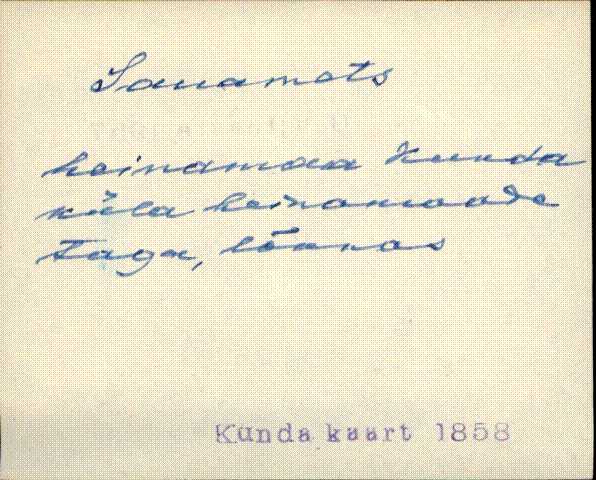 Sauamets
heinamaa Kunda
küla heinamaade
taga, lõunas
Kunda kaart 1858